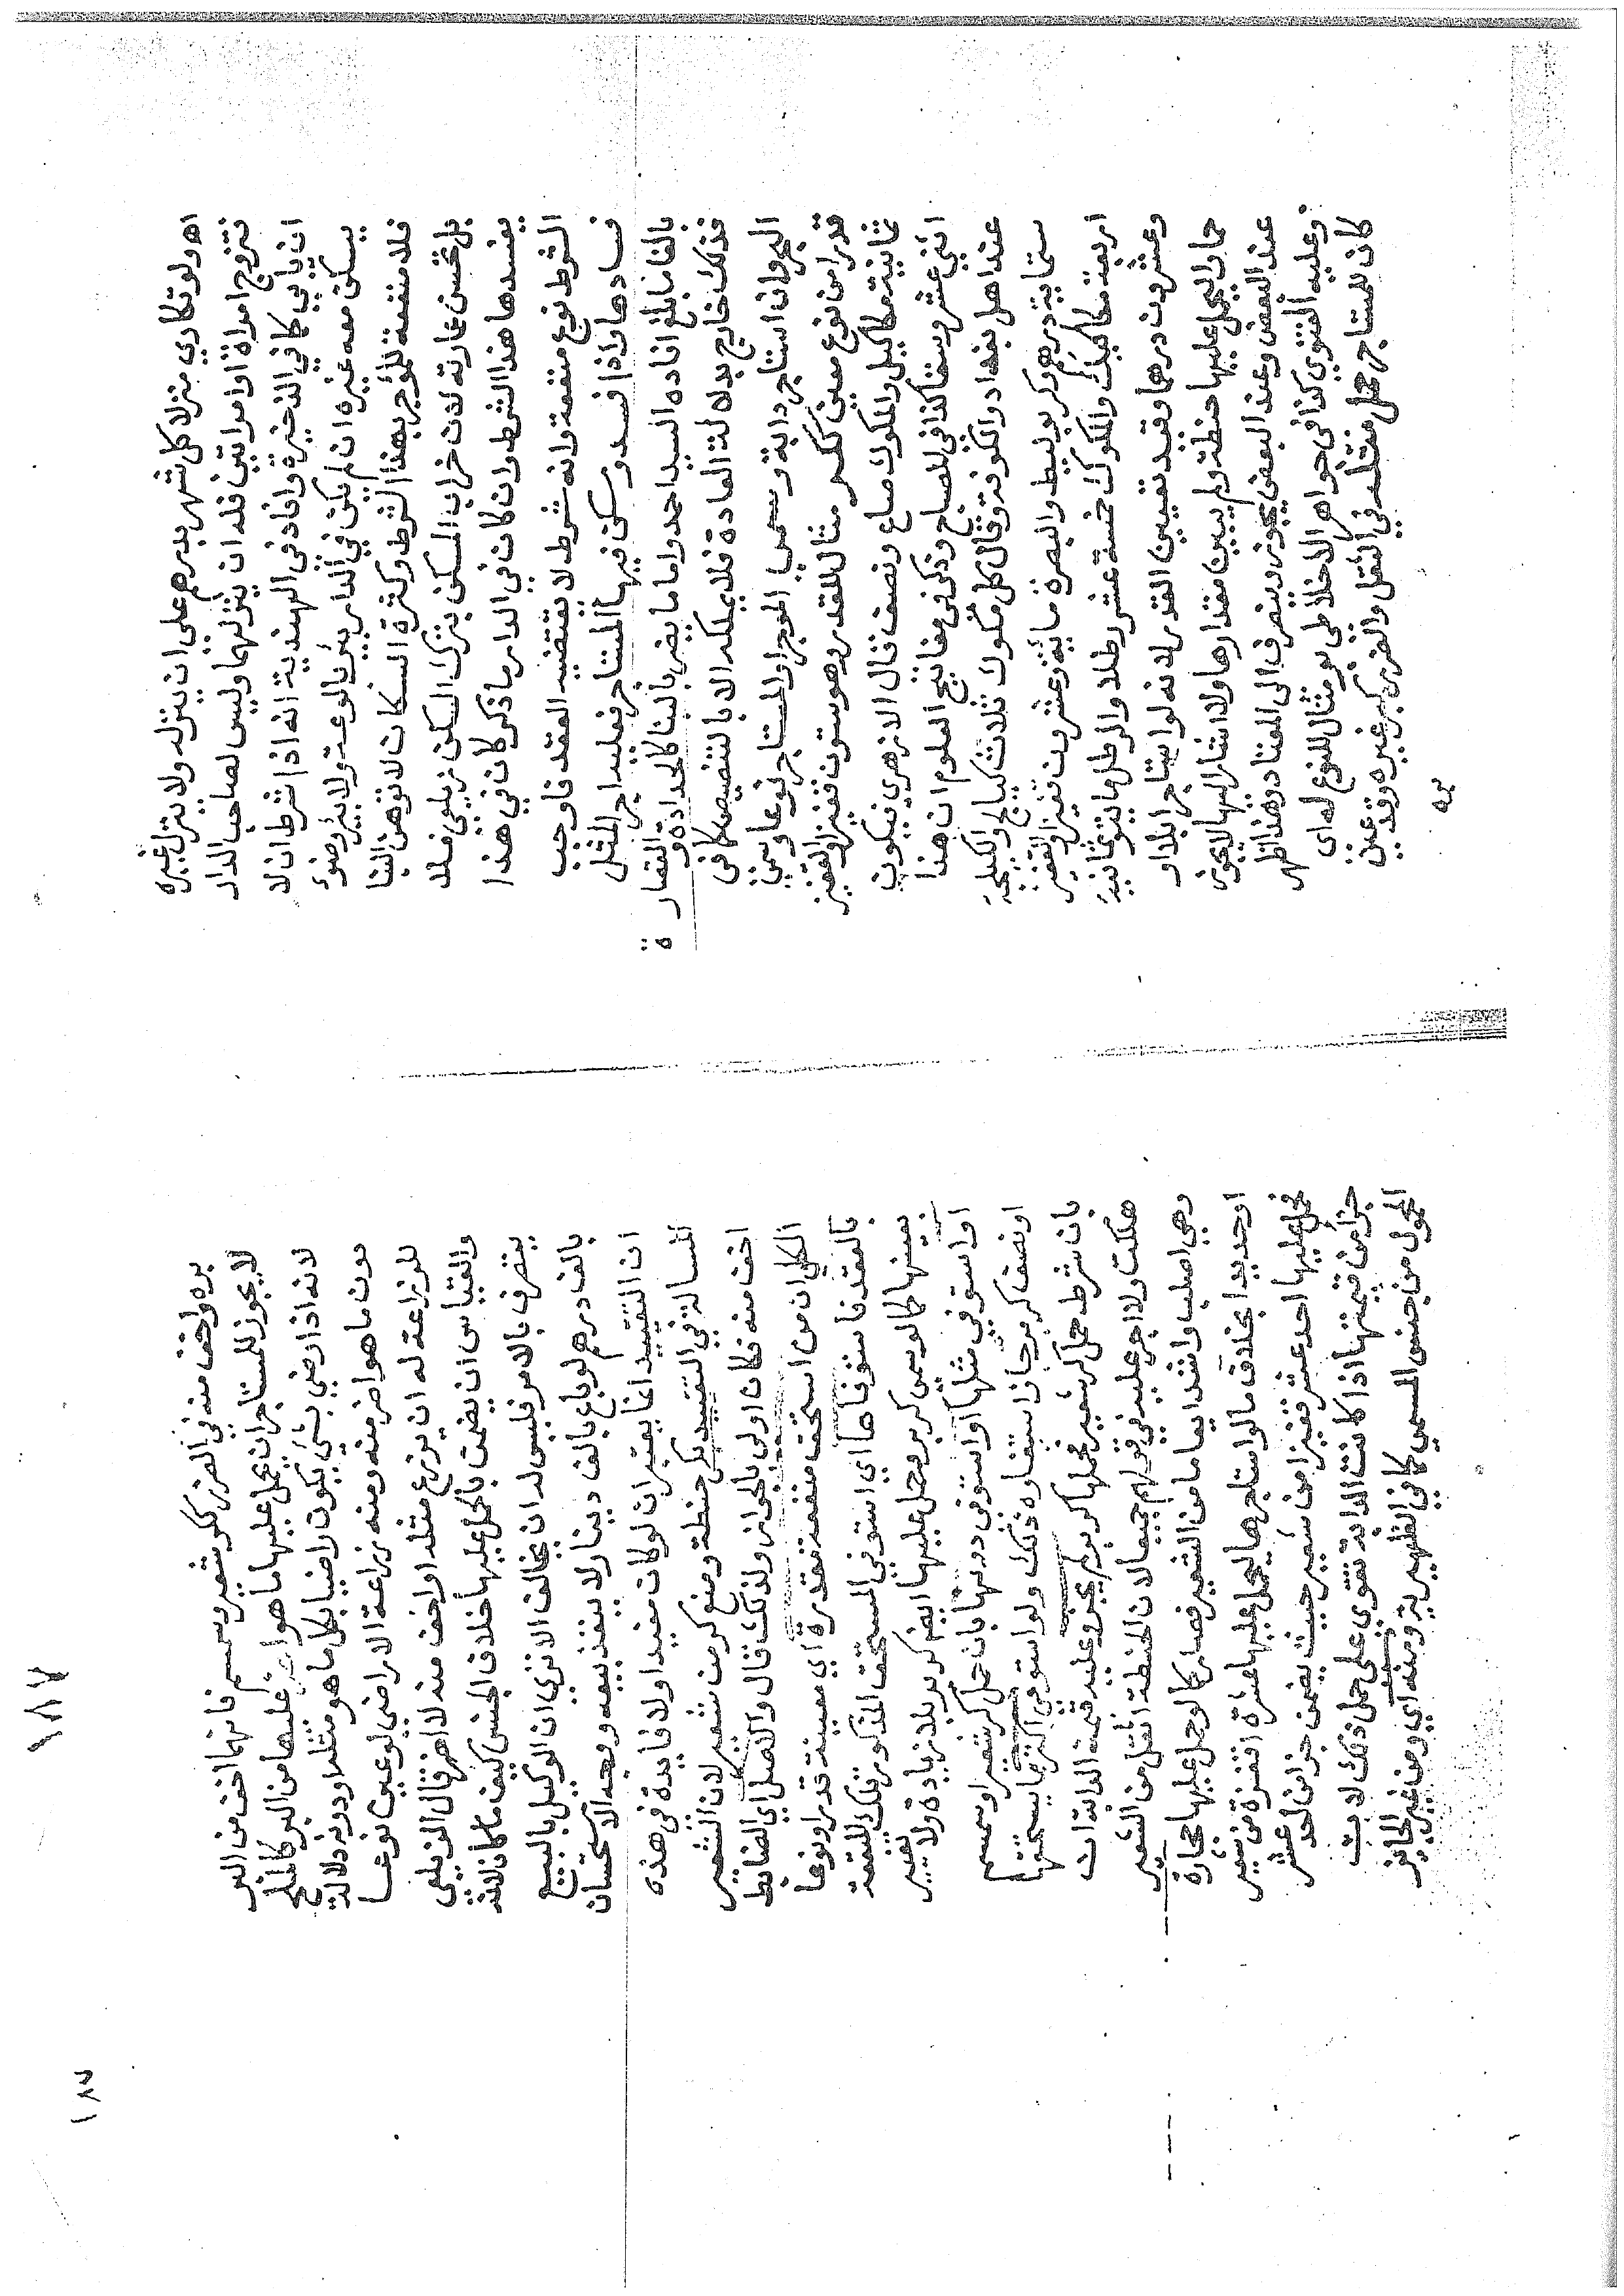 اه ولو تكاري منزلا كل شهر بدرهم علي ان ينزله ولا ينزل غيره
فتزوج امراة او امراتين فله ان ينزلهما وليس لصاحب الدار
ان يابي كما في الذخيرة وافاد في الهندية انه اذا شرط ان لا
يسكن معه غيره ان لم يكن في الدار بير بالوعة ولا بير وضوء
فلا منفعة للمؤجر بهذا الشرط وكثرة السكان لا توهن البنا
بل تحسن عمارته لان خراب المسكن بترك السكن زيلعي فلا
يفسدها هذا الشرط وان كان في الدار ما ذكر كان في هذا
الشرط نوع منفعة وانه شرط لا يقتضيه العقد فاوجب
فسادها واذا فسد وسكن فيها المستاجر فعليه اجر المثل
بالغا ما بلغ افاده السيد احمد واما ما يضر بالبنا كالحدادة والقصارة
فذلك خارج بدلالة العادة فلا يملكه الا بالتنصيص كما في
البحر وان استاجر دابة وسمي الموجر او المستاجر نوعا وسمي
قدرا من نوع معين ككر مثال للقدر وهو ستون قفيزا والقفيز
ثمانية مكاكيل والمكوك صاع ونصف قال الازهري فيكون
اثني عشر وسقا كذا في المصباح وذكر في مفاتيح العلوم ان هذا
عند اهل بغداد والكوفة وقال كل مكوك ثلاث كيالج والكيلجة
ستماية درهم وكر بوليط والبصرة ماية وعشرون قفيزا والقفيز
اربعة مكاكيك والمكوك خمسة عشر رطلا والرطل ماية وثمانية
وعشرون درهما وقيد تعيين القدر لانه لو استاجر ابلا او
حمارا ليحمل عليها حنطة ولم يبين مقدارها ولا اشار اليها لا يجوز
عند البعض وعند البعض يجوز وينصرف الي المعتاد وهذا اظهر
وعليه الفتوي كذا في جواهر الاخلاطي بر مثال للنوع له اي
كان للمستاجر حمل مثله في الثقل والضرر كبر غيره وقد عين
بره
بره واخف منه في الضرر ككر شعير وسمسم فانهما اخف من البر
لا يجوز للمستاجر ان يحمل عليها ما هو اضر عليها من البر كالملح
لانه اذا رضي بشي يكون راضيا بكل ما هو مثله او دونه دلالة
دون ما هو اضر منه ومنه زراعة الاراضي لو عين نوعا
للزراعة له ان يزرع مثله او اخف منه لا اضر قال الزيلعي
والقياس ان يضمن بالحمل عليها خلاف الجنس كيف ما كان لانه
يتصرف بالامر فليس له ان يخالف الا تري ان الوكيل بالبيع
بالف درهم لو باع بالف دينار لا ينفذ بيعه ووجه الاستحسان
ان التقييد انما يعتبر ان لو كان مفيدا ولا فايدة في هذه
المسالة في التقييد بكر حنطة ومنع كر من شعير لان الشعير
اخف منه فكان اولي بالجواز ولذلك قال والاصل اي الضابط
الكلي ان من استحق منفعة مقدرة اي معينة قدرا ونوعا
بالعقد فاستوفاها اي استوفي المستحق المذكور تلك المنفعة
بعينها كما لو سمي كر بر وحمل عليها ايضا كر بر بلا زيادة ولا تغيير
او استوفي مثلها او استوفي دونها بان حمل كر شعير او سمسم
او نصف كر بر جاز استيفاوه ذلك ولو استوفي اكثر مما يستحقها
بان شرط حمل كر شعير فحملها كر بر لم يجز وعليه قيمة الدابة ان
هلكت ولا اجر عليه في قولهم جميعا لان الحنطة اثقل من الشعير
وهي اصلب واشد ايعاما من الشعير فصار كما لو حمل عليها حجارة
او حديدا بخلاف ما لو استاجرها ليحمل عليها عشرة اقفزة من شعير
فحمل عليها احد عشر قفيزا من شعير حيث يضمن جزا من احد عشر
جزا من قيمتها اذا كانت الدابة تقوي علي حمل ذلك لان
المحمول من جنس المسمي كما في الظهيرية ومنه اي ومن غير الجايز
١٨٧
١٨٢